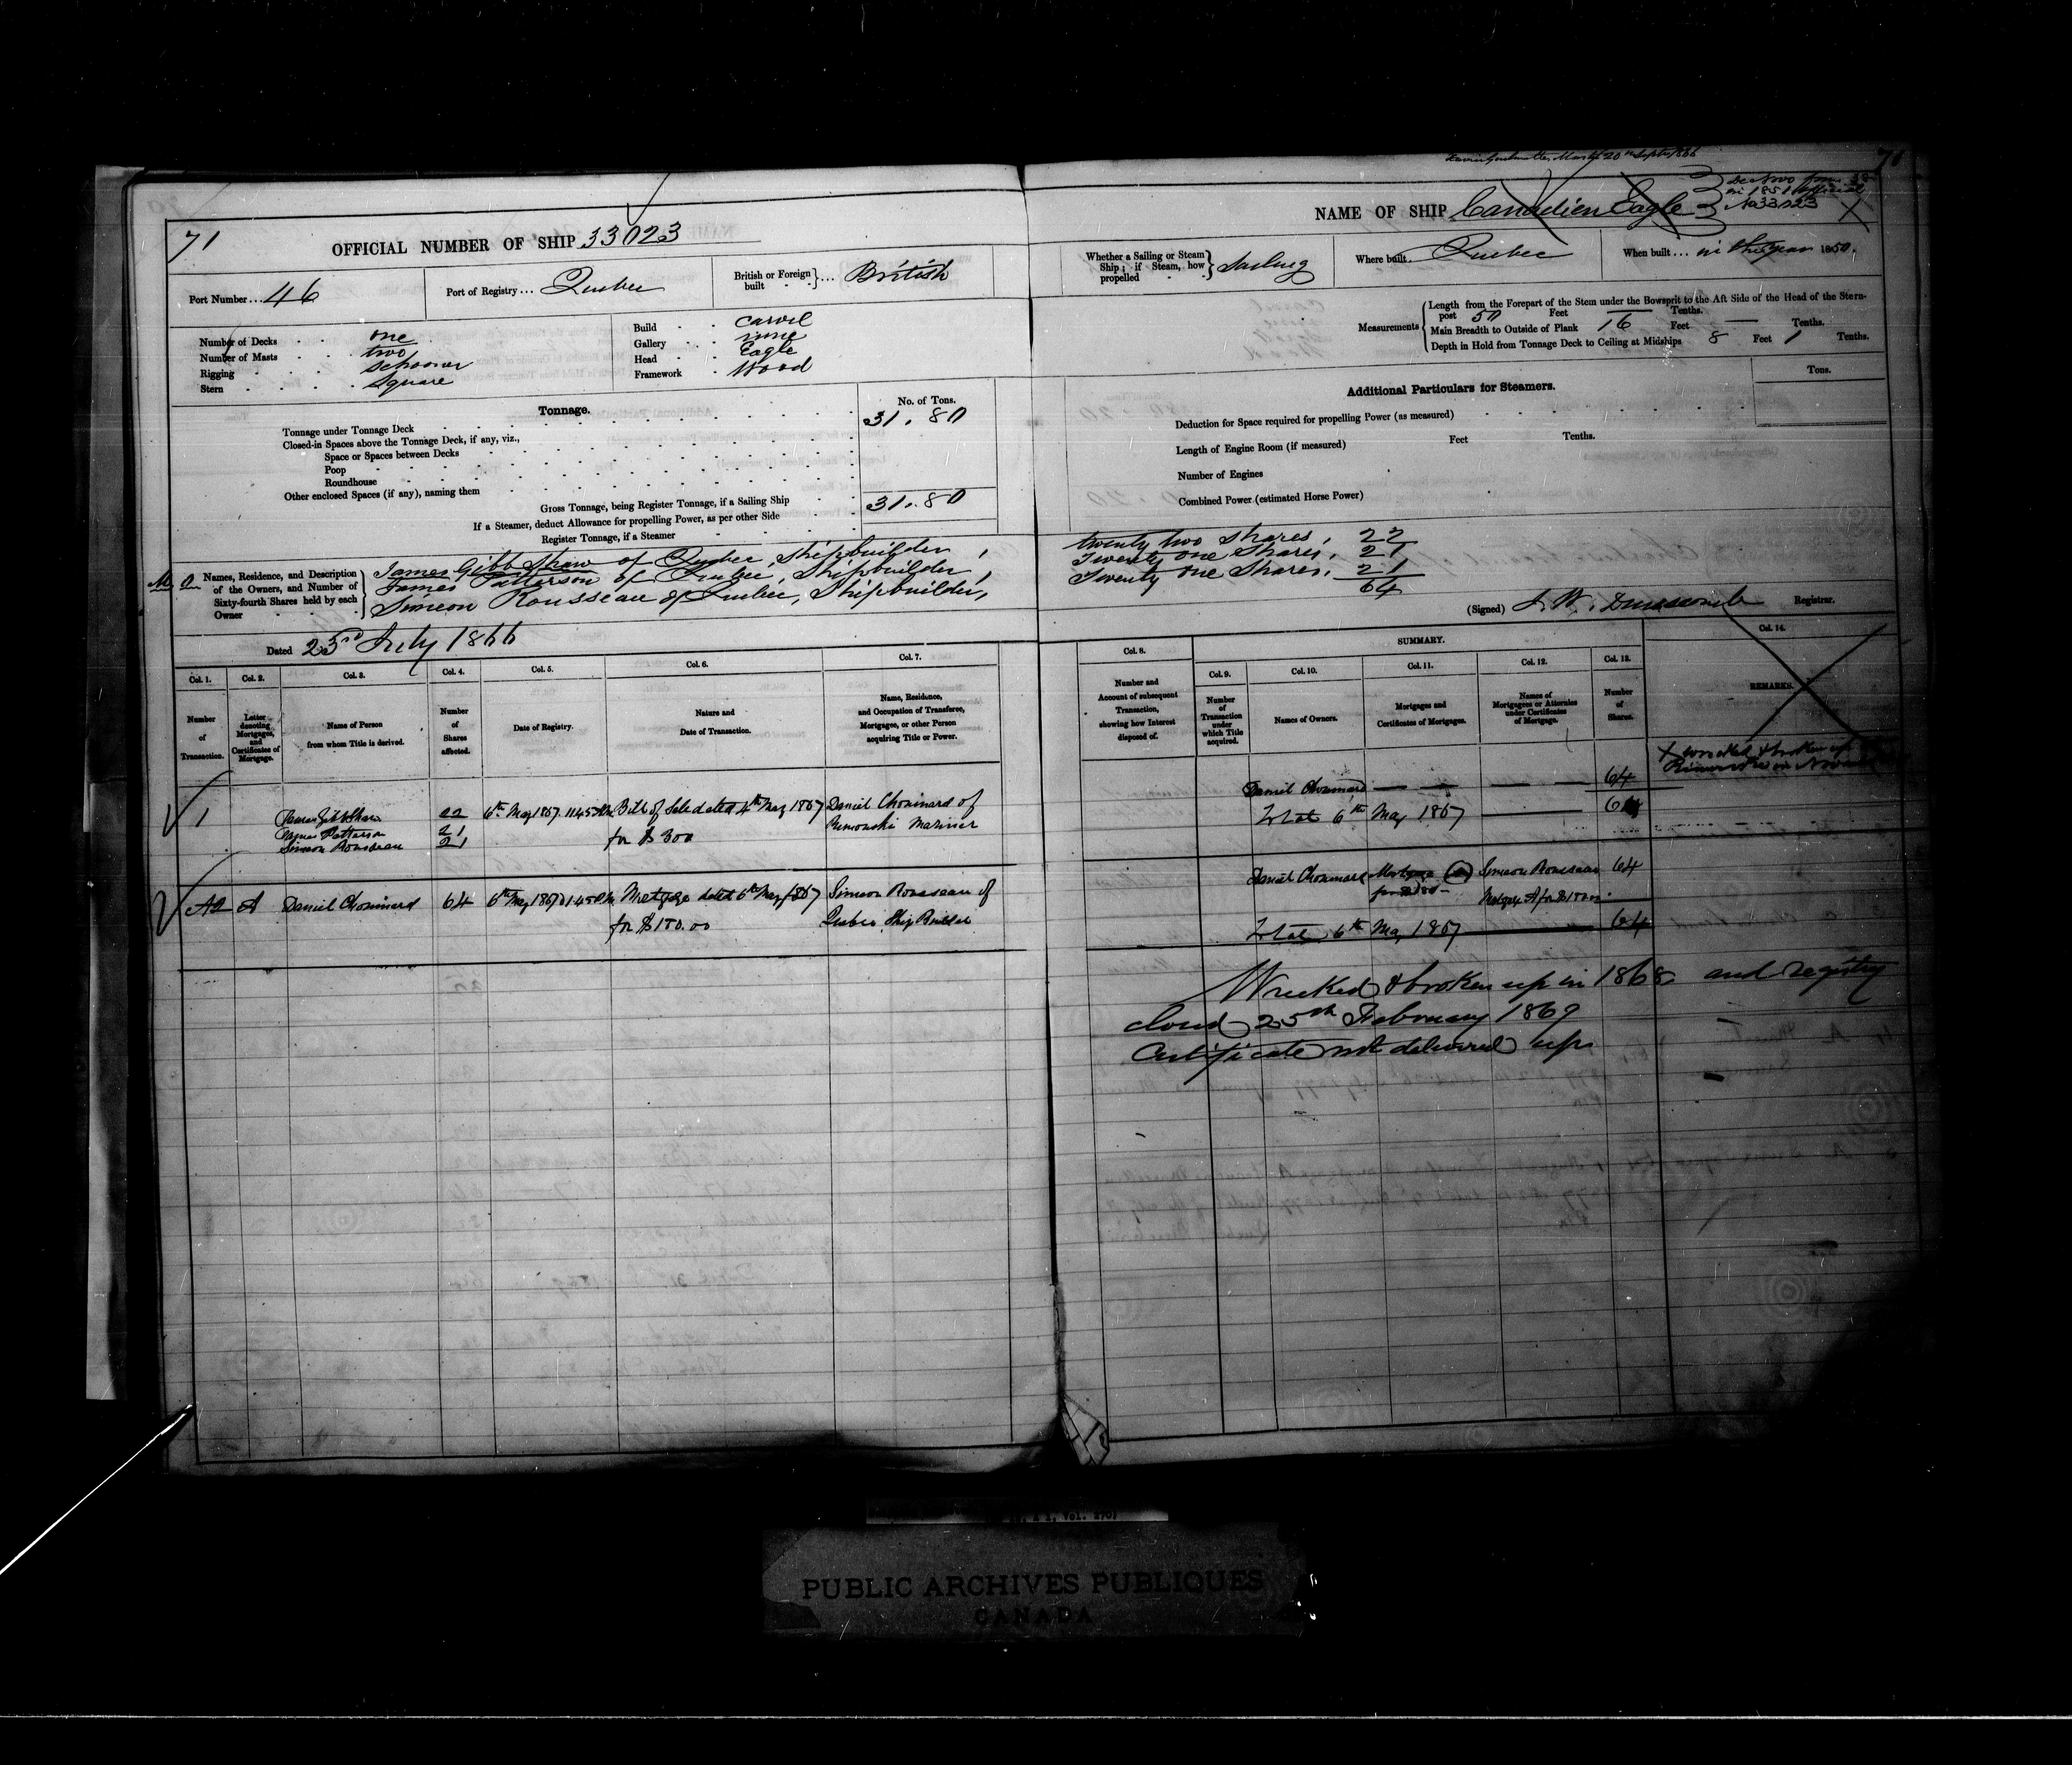 71
OFFICIAL NUMBER OF SHIP 33023
Port Number ... 46
Port of Registry ... Quebec
British or Foreign built } ... British
Number of Decks one
Number of Masts two
Rigging Schooner
Stern Square
Build Carvel
Gallery none
Head Eagle
Framework Wood
Tonnage.
No. of Tons.
Tonnage under Tonnage Deck 31.80
Closed-in Spaces above the Tonnage Deck, if any, viz.,
Space or Spaces between Decks
Poop
Roundhouse
Other enclosed Spaces (if any), naming them
Gross Tonnage, being Register Tonnage, if a Sailing Ship 31.80
If a Steamer, deduct Allowance for propelling Power, as per other Side
Register Tonnage, if a Steamer
Names, Residence, and Description of the Owners, and Number of Sixty-fourth Shares held by each Owner
James Gibb Shaw of Quebec, Shipbuilder,
James Patterson of Quebec, Shipbuilder,
Simeon Rousseau of Quebec, Shipbuilder,
Dated 23rd July 1866
Col. 1. Col. 2. Col. 3. Col. 4. Col. 5. Col. 6. Col. 7.
Number of Transaction.
Letter denoting Mortgages, and Certificates of Mortgage.
Name of Person from whom Title is derived.
Number of Shares affected.
Date of Registry.
Nature and Date of Transaction.
Name, Residence, and Occupation of Transferee, Mortgagee, or other Person acquiring Title or Power.
1 James Gibb Shaw 22 6th May 1867 11.45 Bill of Sale dated 4th May 1867 Daniel Chouinard of
James Patterson 21 for $300 Rimouski Mariner
Simeon Rousseau 21
A2 A Daniel Chouinard 64 6th May 1867 Mortgage dated 6th May 1867 Simeon Rousseau of
for $150.00 Quebec Ship Builder
71
NAME OF SHIP Canadien Eagle
in 1851 official
No 33023
Whether a Sailing or Steam Ship; if Steam, how propelled } Sailing
Where built Quebec
When built ... in the year 1850.
Measurements
Length from the Forepart of the Stem under the Bowsprit to the Aft Side of the Head of the Stern-
post 50 Feet — Tenths.
Main Breadth to Outside of Plank 16 Feet — Tenths.
Depth in Hold from Tonnage Deck to Ceiling at Midships 8 Feet 1 Tenths.
Additional Particulars for Steamers.
Tons.
Deduction for Space required for propelling Power (as measured)
Length of Engine Room (if measured) Feet Tenths.
Number of Engines
Combined Power (estimated Horse Power)
twenty two Shares, 22
Twenty one Shares, 21
Twenty one Shares, 21
64
(Signed) J. W. Dunscomb Registrar.
SUMMARY.
Col. 8. Col. 9. Col. 10. Col. 11. Col. 12. Col. 13. Col. 14.
Number and Account of subsequent Transaction, showing how Interest disposed of.
Number of Transaction under which Title acquired.
Names of Owners.
Mortgages and Certificates of Mortgages.
Names of Mortgagees or Attornies under Certificates of Mortgage.
Number of Shares.
REMARKS.
X wrecked & broken up
Daniel Chouinard 64
Total 6th May 1867 64
Daniel Chouinard Mortgage A Simeon Rousseau 64
Mortgage A for $150.00
Total 6th May 1867 64
Wrecked & broken up in 1868 and registry
closed 25th February 1869
Certificate not delivered up
PUBLIC ARCHIVES PUBLIQUES
CANADA